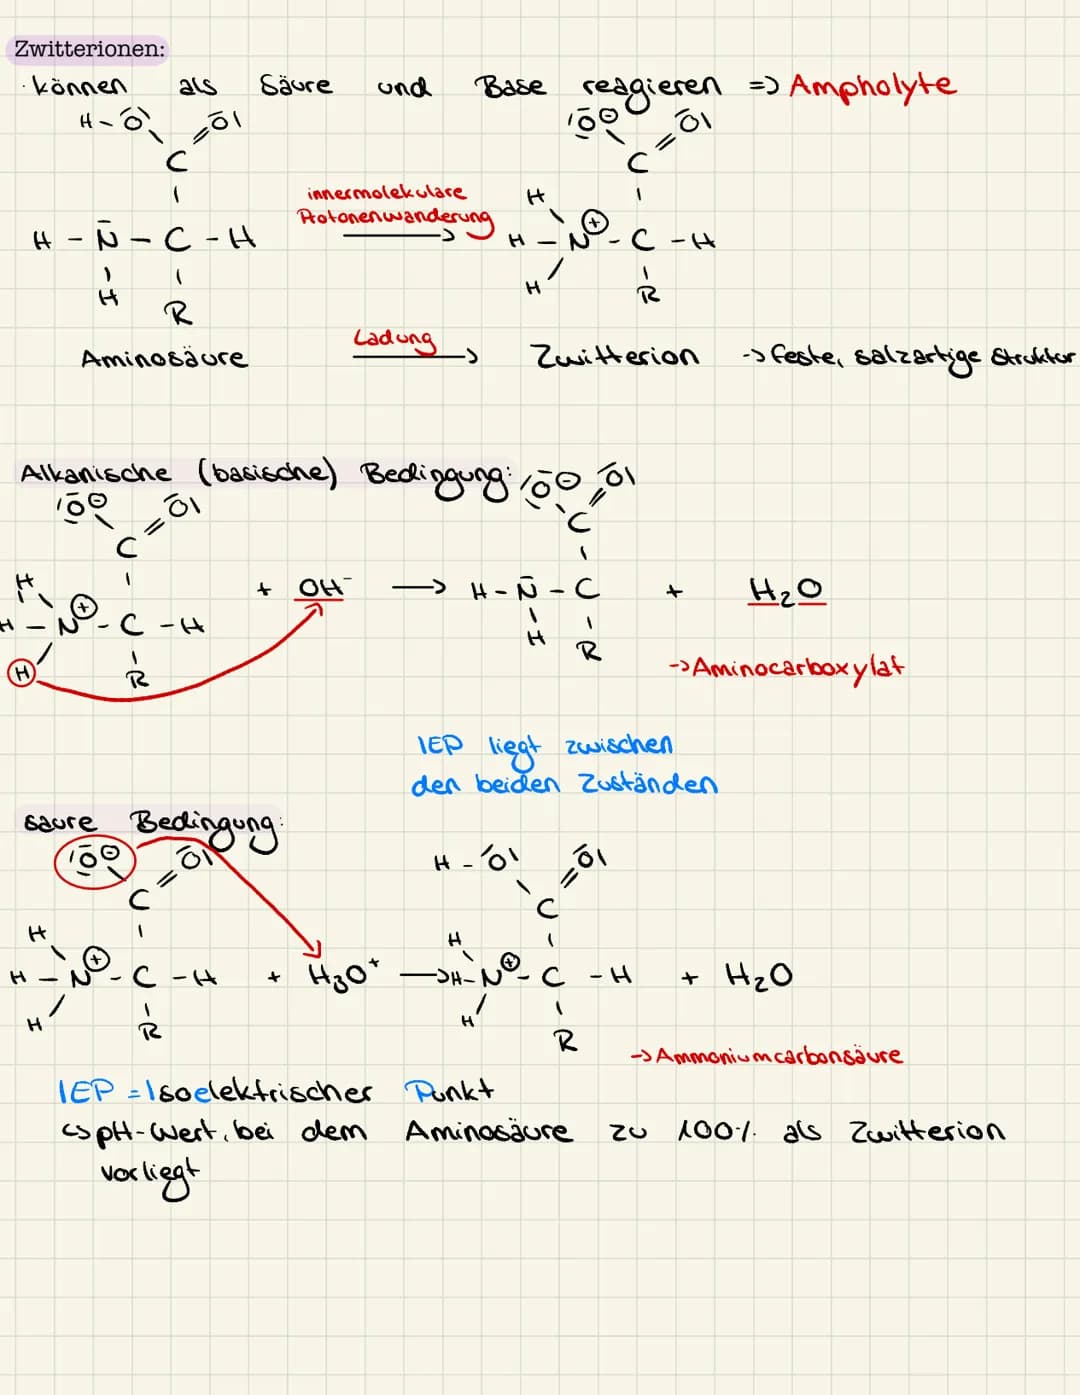 Zwitterionen:
· können als Säure und Base reagieren => Ampholyte
H-O O
C
H - N - C - H
H R
innermolekulare
Protonenwanderung
O⊖ O
C
H
H - N⊕ - C - H
H R
Aminosäure Ladung → Zwitterion -> feste, salzartige Struktur
Alkanische (basische) Bedingung:
O⊖ O
C
H
H - N⊕ - C - H
H R
+ OH⁻ →
O⊖ O
C
H - N - C
H R
+ H₂O
-> Aminocarboxylat
IEP liegt zwischen
den beiden Zuständen
saure Bedingung:
O⊖ O
C
H
H - N⊕ - C - H
H R
+ H₃O⁺ →
H - O O
C
H
H - N⊕ - C - H
H R
+ H₂O
-> Ammoniumcarbonsäure
IEP = Isoelektrischer Punkt
↪ pH-Wert, bei dem Aminosäure zu 100% als Zwitterion
vorliegt